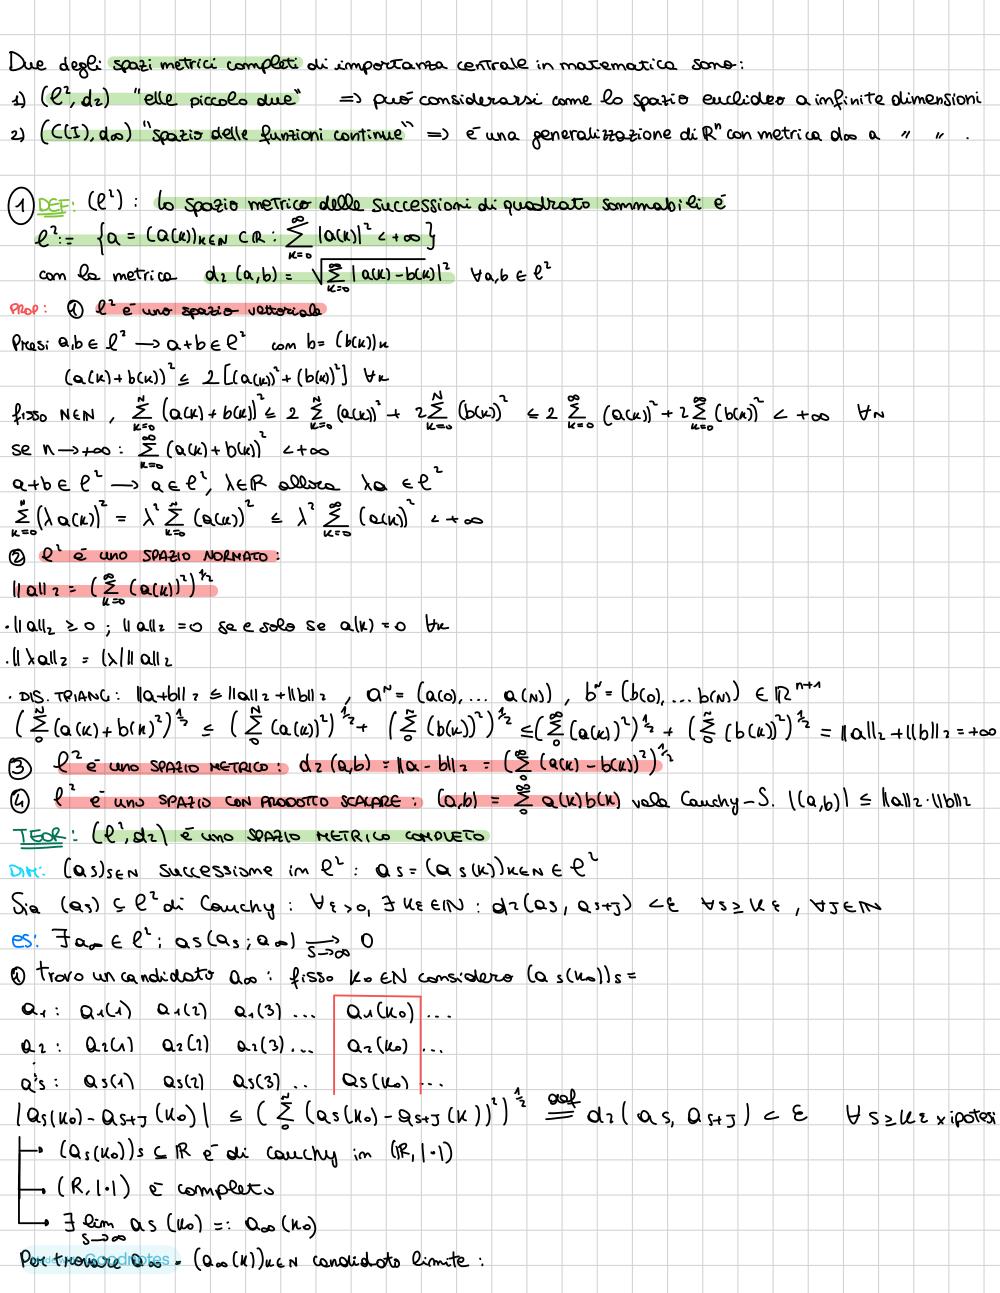 Due degli spazi metrici completi di importanza centrale in matematica sono:
1) (ℓ², d₂) "elle piccolo due" => può considerarsi come lo spazio euclideo a infinite dimensioni
2) (C(I), d∞) "spazio delle funzioni continue" => é una generalizzazione di Rⁿ con metrica d∞ a " " .
① DEF: (ℓ²) : lo spazio metrico delle successioni di quadrato sommabili é
ℓ² := {a = (a(k))k∈N ⊂ R : ∑_{k=0}^∞ |a(k)|² < +∞}
con la metrica d₂(a,b) = √(∑_{k=0}^∞ |a(k) - b(k)|²) ∀a,b ∈ ℓ²
PROP: ① ℓ² é uno spazio vettoriale
Presi a,b ∈ ℓ² → a+b ∈ ℓ² con b = (b(k))k
(a(k) + b(k))² ≤ 2[(a(k))² + (b(k))²] ∀k
fisso N∈N , ∑_{k=0}^N (a(k) + b(k))² ≤ 2 ∑_{k=0}^N (a(k))² + 2 ∑_{k=0}^N (b(k))² ≤ 2 ∑_{k=0}^∞ (a(k))² + 2 ∑_{k=0}^∞ (b(k))² < +∞ ∀N
se n → +∞ : ∑_{k=0}^∞ (a(k) + b(k))² < +∞
a+b ∈ ℓ² → a ∈ ℓ², λ∈R allora λa ∈ ℓ²
∑_{k=0}^N (λa(k))² = λ² ∑_{k=0}^N (a(k))² ≤ λ² ∑_{k=0}^∞ (a(k))² < +∞
② ℓ² é uno SPAZIO NORMATO:
||a||₂ = (∑_{k=0}^∞ (a(k))²)^{1/2}
· ||a||₂ ≥ 0 ; ||a||₂ = 0 se e solo se a(k) = 0 ∀k
· ||λa||₂ = |λ| ||a||₂
· DIS. TRIANG: ||a+b||₂ ≤ ||a||₂ + ||b||₂ , aᴺ = (a(0), ... a(N)) , bᴺ = (b(0), ... b(N)) ∈ R^{n+1}
(∑_0^N (a(k) + b(k)²)^{1/2} ≤ (∑_0^N (a(k))²)^{1/2} + (∑_0^N (b(k))²)^{1/2} ≤ (∑_0^∞ (a(k))²)^{1/2} + (∑_0^∞ (b(k))²)^{1/2} = ||a||₂ + ||b||₂ = +∞
③ ℓ² é uno SPAZIO METRICO: d₂(a,b) = ||a - b||₂ = (∑_0^∞ (a(k) - b(k))²)^{1/2}
④ ℓ² é uno SPAZIO CON PRODOTTO SCALARE: (a,b) = ∑_0^∞ a(k)b(k) vale Cauchy-S. |(a,b)| ≤ ||a||₂·||b||₂
TEOR: (ℓ², d₂) é uno SPAZIO METRICO COMPLETO
DIM: (as)s∈N successione in ℓ² : as = (as(k))k∈N ∈ ℓ²
Sia (as) ⊆ ℓ² di Cauchy : ∀ε>0, ∃ kε ∈ N : d₂(as, as+j) < ε ∀s ≥ kε , ∀j∈N
es: ∃a∞ ∈ ℓ² : as(as; a∞) →_{s→∞} 0
① trovo un candidato a∞ : fisso k₀ ∈ N considero (as(k₀))s =
a₁ : a₁(1) a₁(2) a₁(3) ... a₁(k₀) ...
a₂ : a₂(1) a₂(2) a₂(3) ... a₂(k₀) ...
as : as(1) as(2) as(3) .. as(k₀) ...
|as(k₀) - as+j(k₀)| ≤ (∑_0^∞ (as(k₀) - as+j(k))²)^{1/2} =^{def} d₂(as, as+j) < ε ∀s ≥ kε x ipotesi
→ (as(k₀))s ⊆ R é di cauchy in (R, |·|)
→ (R, |·|) é completo
→ ∃ lim_{s→∞} as(k₀) =: a∞(k₀)
Per trovare a∞ = (a∞(k))k∈N candidato limite :